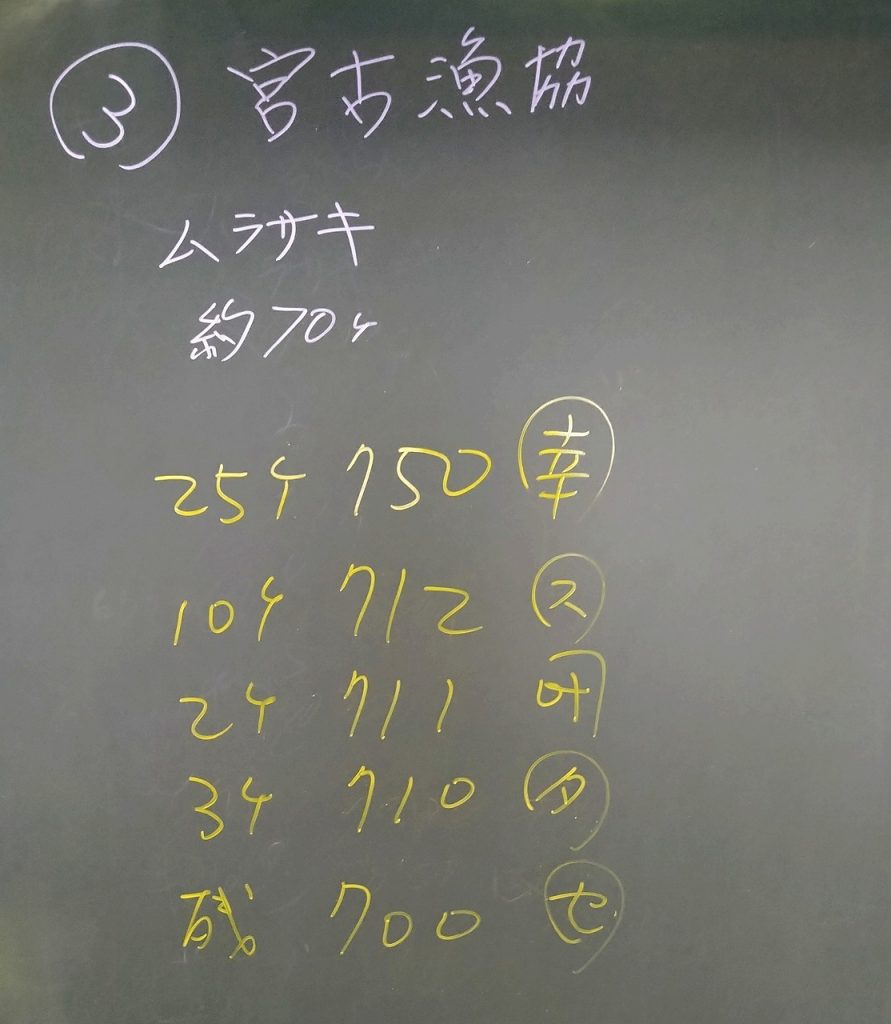 ③ 宮古漁協
ムラサキ
約70ヶ
25ケ 750 幸
10ケ 712 ス
2ケ 711
3ケ 710 タ
残 700 セ